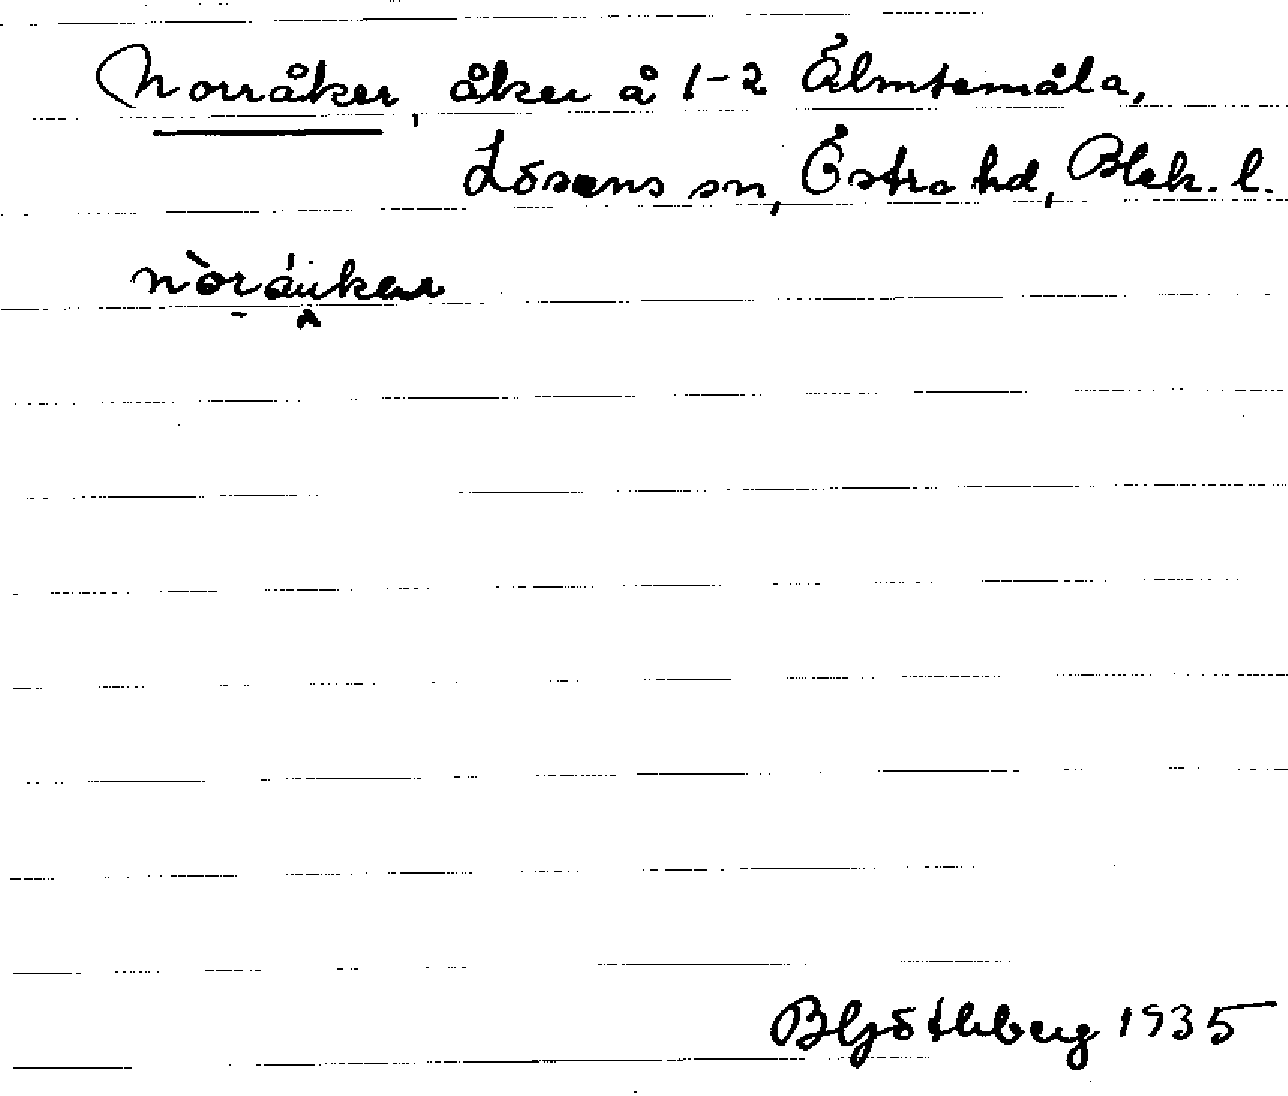 Norråker, åker å 1-2 Älmtemåla,
Lösens sn, Östra hd, Blek. l.
nòráuker
BGötlberg 1935